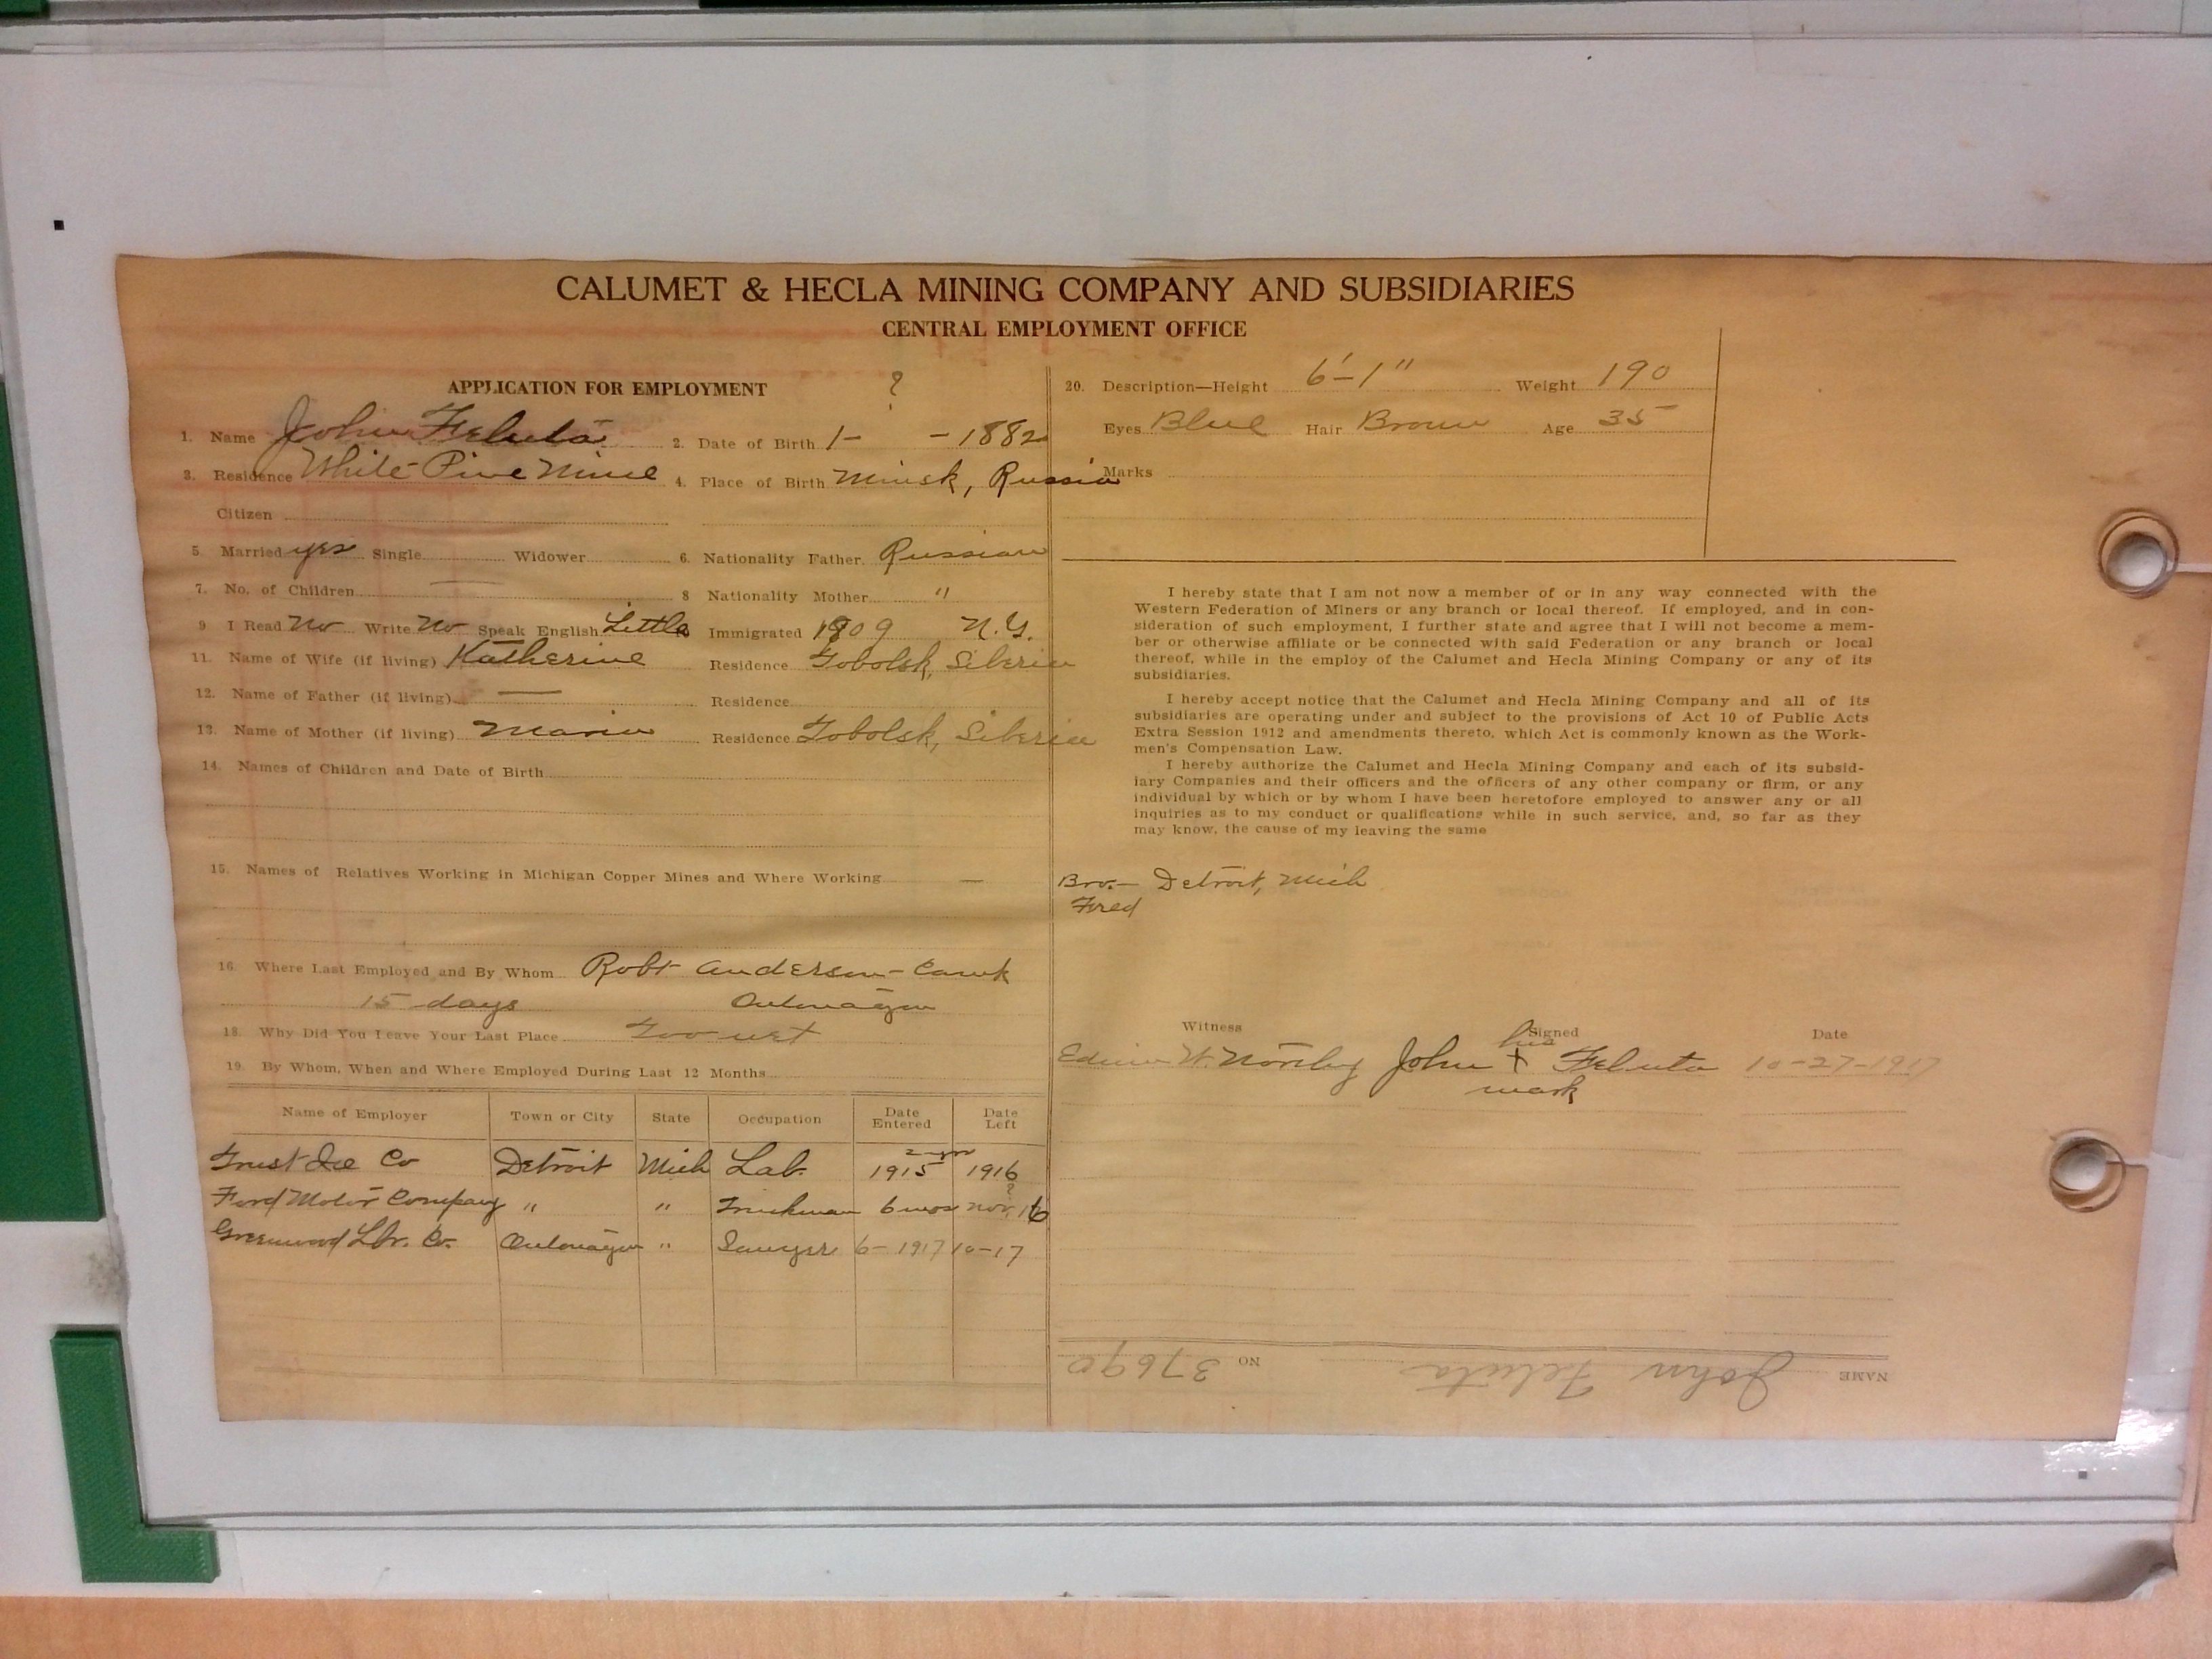 CALUMET & HECLA MINING COMPANY AND SUBSIDIARIES
CENTRAL EMPLOYMENT OFFICE
APPLICATION FOR EMPLOYMENT ?
1. Name John Feluta 2. Date of Birth 1- -1882
3. Residence White Pine Mine 4. Place of Birth Minsk, Russia
Citizen
5. Married yes Single Widower 6. Nationality Father Russian
7. No. of Children — 8 Nationality Mother "
9 I Read No Write No Speak English Little Immigrated 1909 N.Y.
11. Name of Wife (if living) Katherine Residence Tobolsk, Siberia
12. Name of Father (if living) — Residence
13. Name of Mother (if living) Maria Residence Tobolsk, Siberia
14. Names of Children and Date of Birth
15. Names of Relatives Working in Michigan Copper Mines and Where Working —
16. Where Last Employed and By Whom Robt Anderson - Camp
15 days Ontonagon
18. Why Did You Leave Your Last Place Too wet
19. By Whom, When and Where Employed During Last 12 Months
Name of Employer Town or City State Occupation Date Entered Date Left
Ice Co Detroit Mich Lab. 2 yrs 1915 1916
Ford Motor Company " " Truckman 6 mos Nov. 16 ?
Greenwood Lbr. Co. Ontonagon " Sawyer 6-1917 10-17
20. Description—Height 6'-1" Weight 190
Eyes Blue Hair Brown Age 35
Marks
I hereby state that I am not now a member of or in any way connected with the
Western Federation of Miners or any branch or local thereof. If employed, and in con-
sideration of such employment, I further state and agree that I will not become a mem-
ber or otherwise affiliate or be connected with said Federation or any branch or local
thereof, while in the employ of the Calumet and Hecla Mining Company or any of its
subsidiaries.
I hereby accept notice that the Calumet and Hecla Mining Company and all of its
subsidiaries are operating under and subject to the provisions of Act 10 of Public Acts
Extra Session 1912 and amendments thereto, which Act is commonly known as the Work-
men's Compensation Law.
I hereby authorize the Calumet and Hecla Mining Company and each of its subsid-
iary Companies and their officers and the officers of any other company or firm, or any
individual by which or by whom I have been heretofore employed to answer any or all
inquiries as to my conduct or qualifications while in such service, and, so far as they
may know, the cause of my leaving the same
Bro. - Detroit, Mich
Fred
Witness Signed Date
Edwin W. John his + mark Feluta 10-27-1917
NAME John Feluta NO 37690